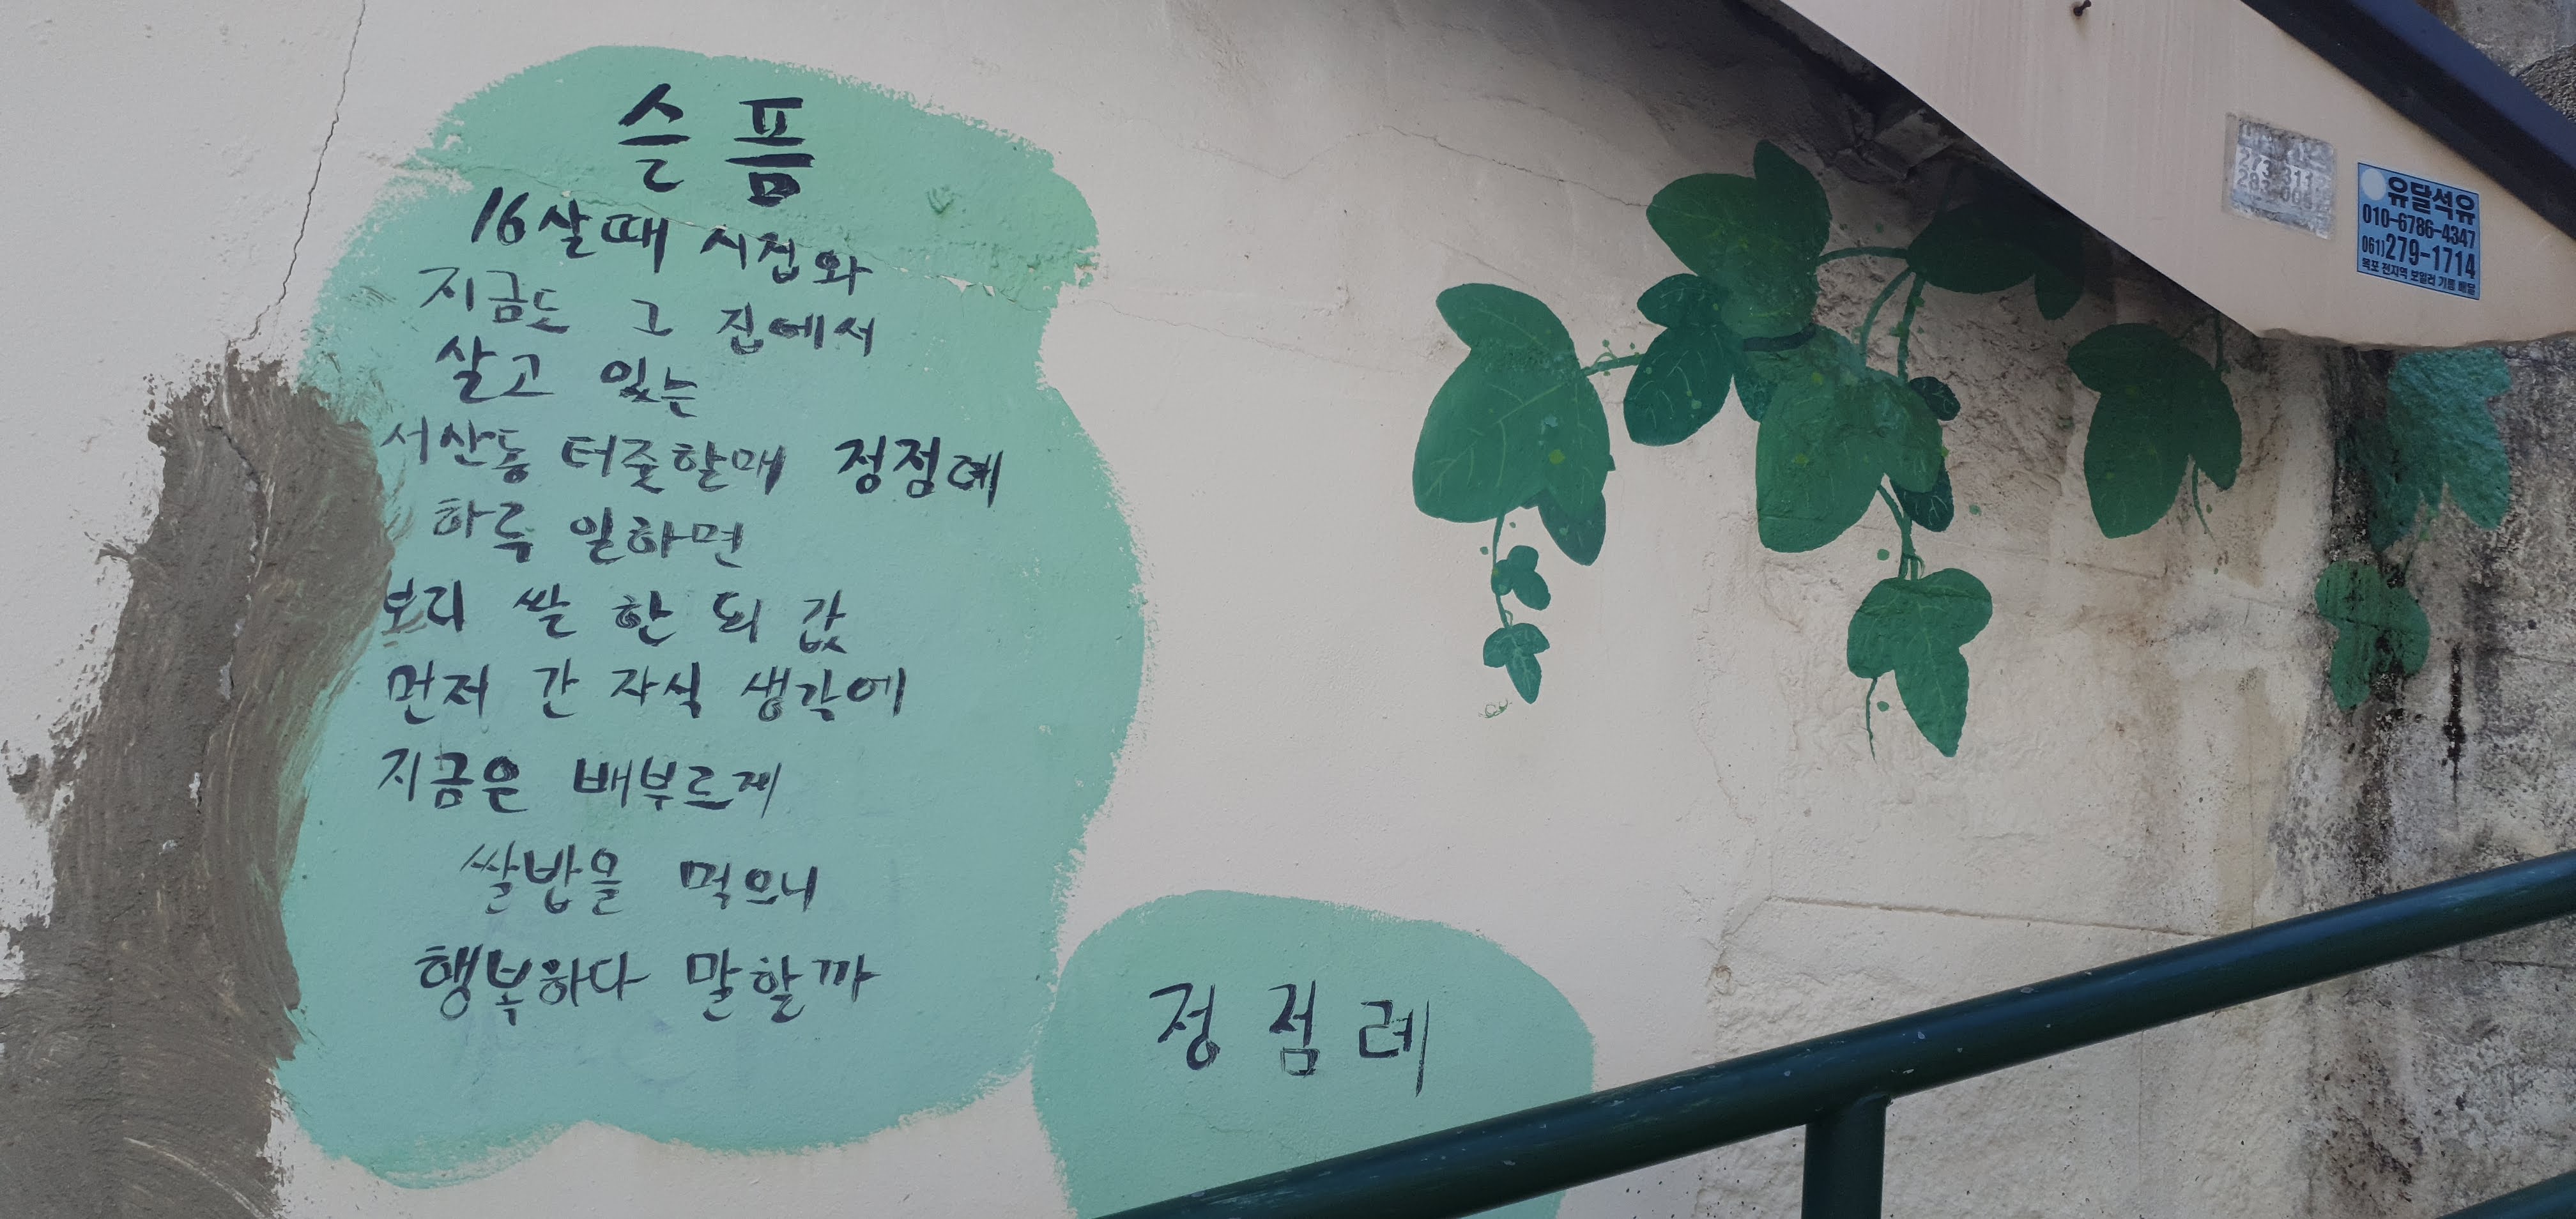 슬픔
16살때 시집와
지금도 그 집에서
살고 있는
서산동 터줄할매 정점례
하루 일하면
보리 쌀 한 되 값
먼저 간 자식 생각에
지금은 배부르게
쌀밥을 먹으니
행복하다 말할까
정점례
유달석유
010-6786-4347
061)279-1714
목포 전지역 보일러 기름 배달